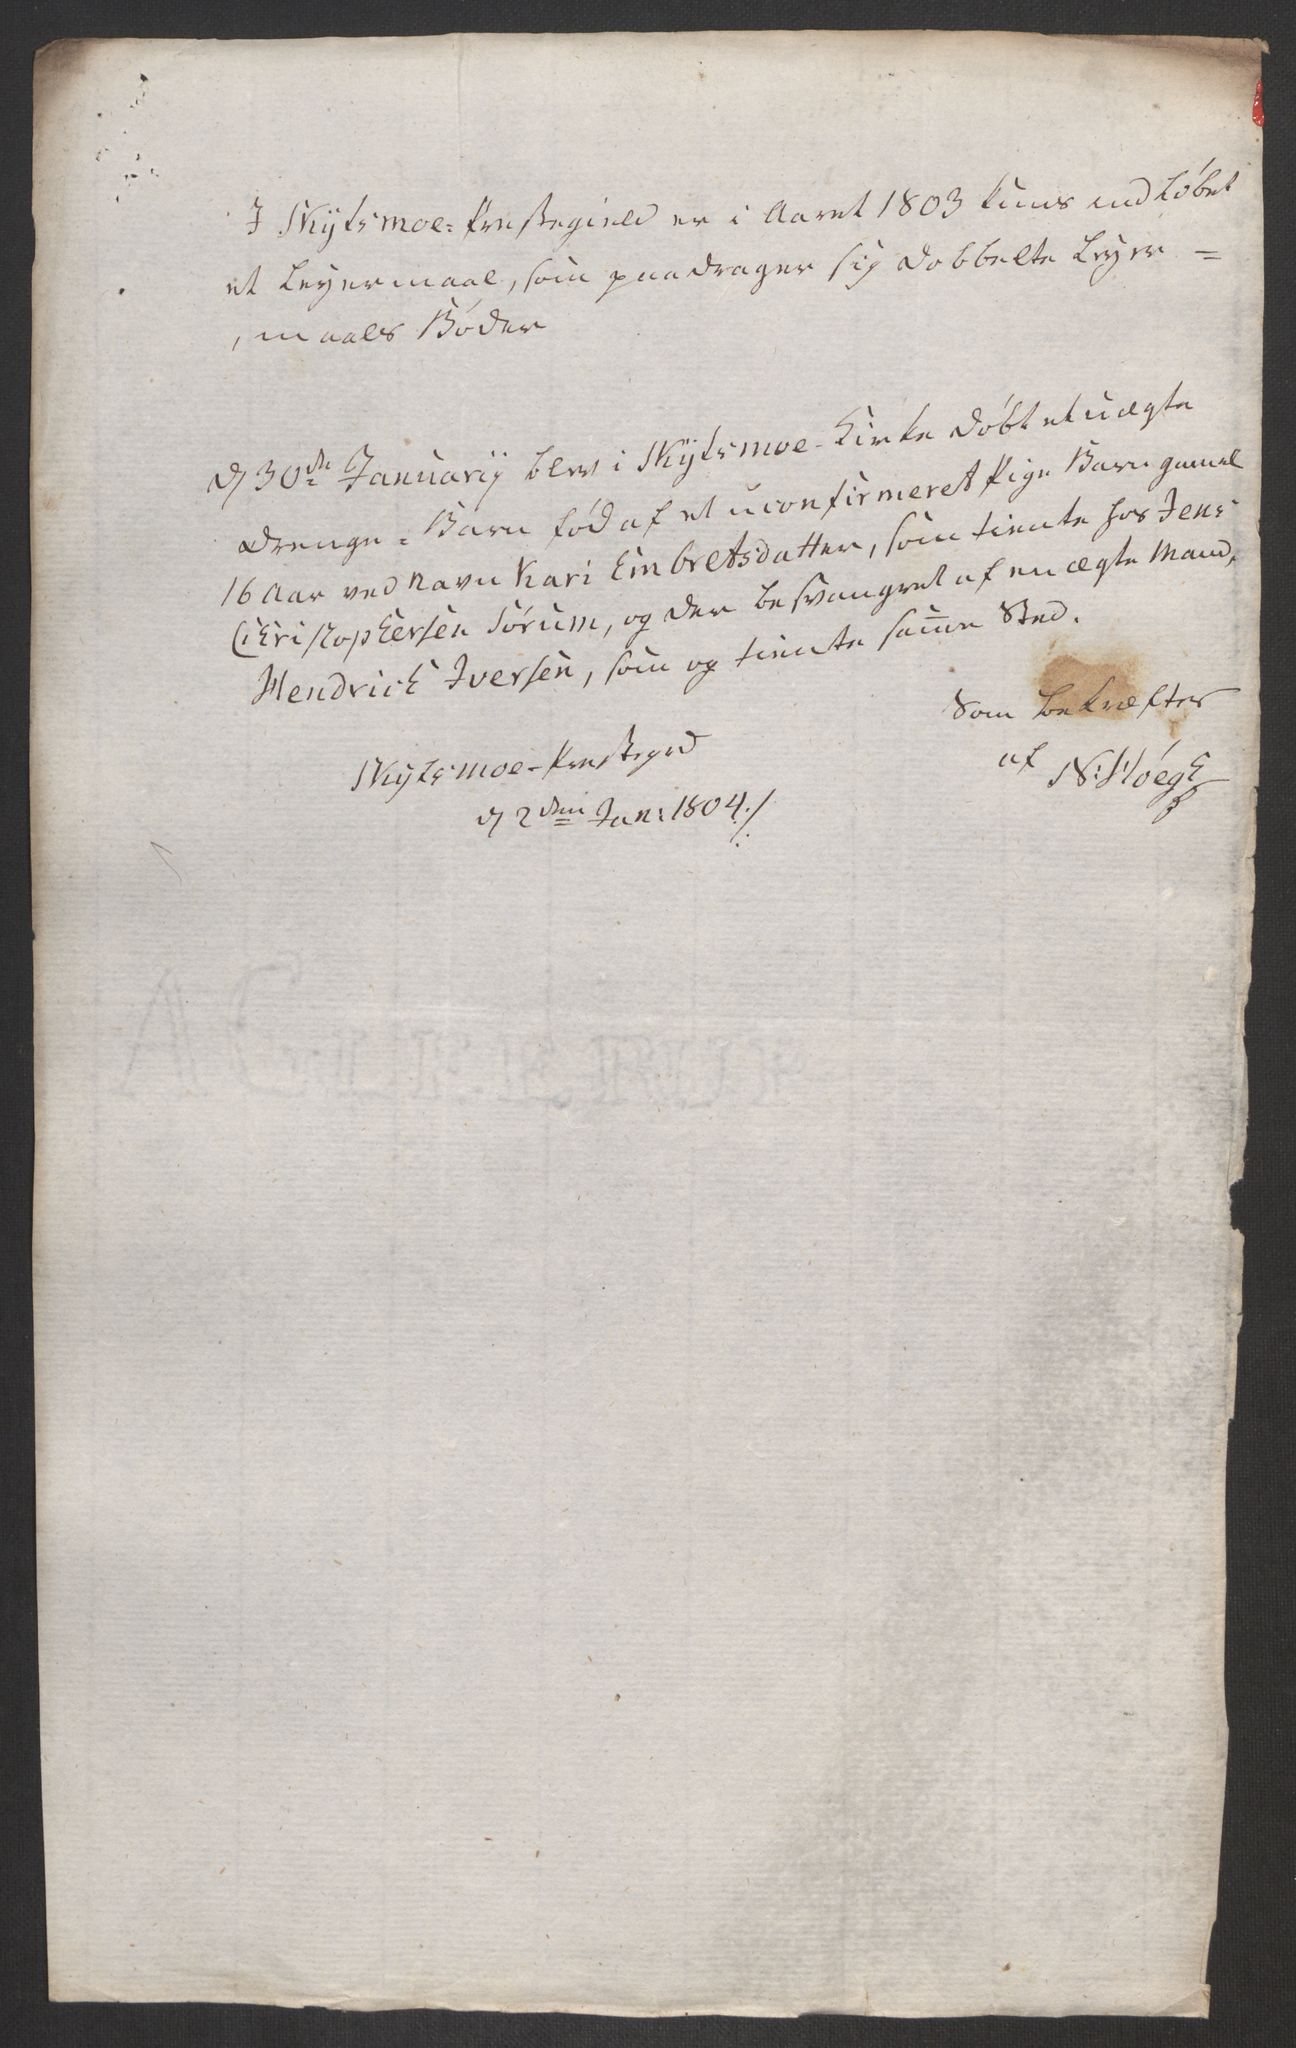 I Skydsmoe-Præstegield er i Aaret 1803 kuns indløbet
et Leyermaal, som paadrager sig dobbelte Leyer =
, maals Bøder
d 30de Januarij blev i Skydsmoe-Kirke døbt et uægte
Drenge = Barn fød af et uconfirmeret Pige Barn gamel
16 Aar ved Navn Kari Embretsdatter, som tiente hos Jens
Christophersen Sørum, og der besvangret af en ægte Mand,
Hendrich Iversen, som og tiente samme Sted.
Som bekræfter
Skydsmoe-Præstegrd
af N: Høegh
d 2den Jan: 1804 ./.